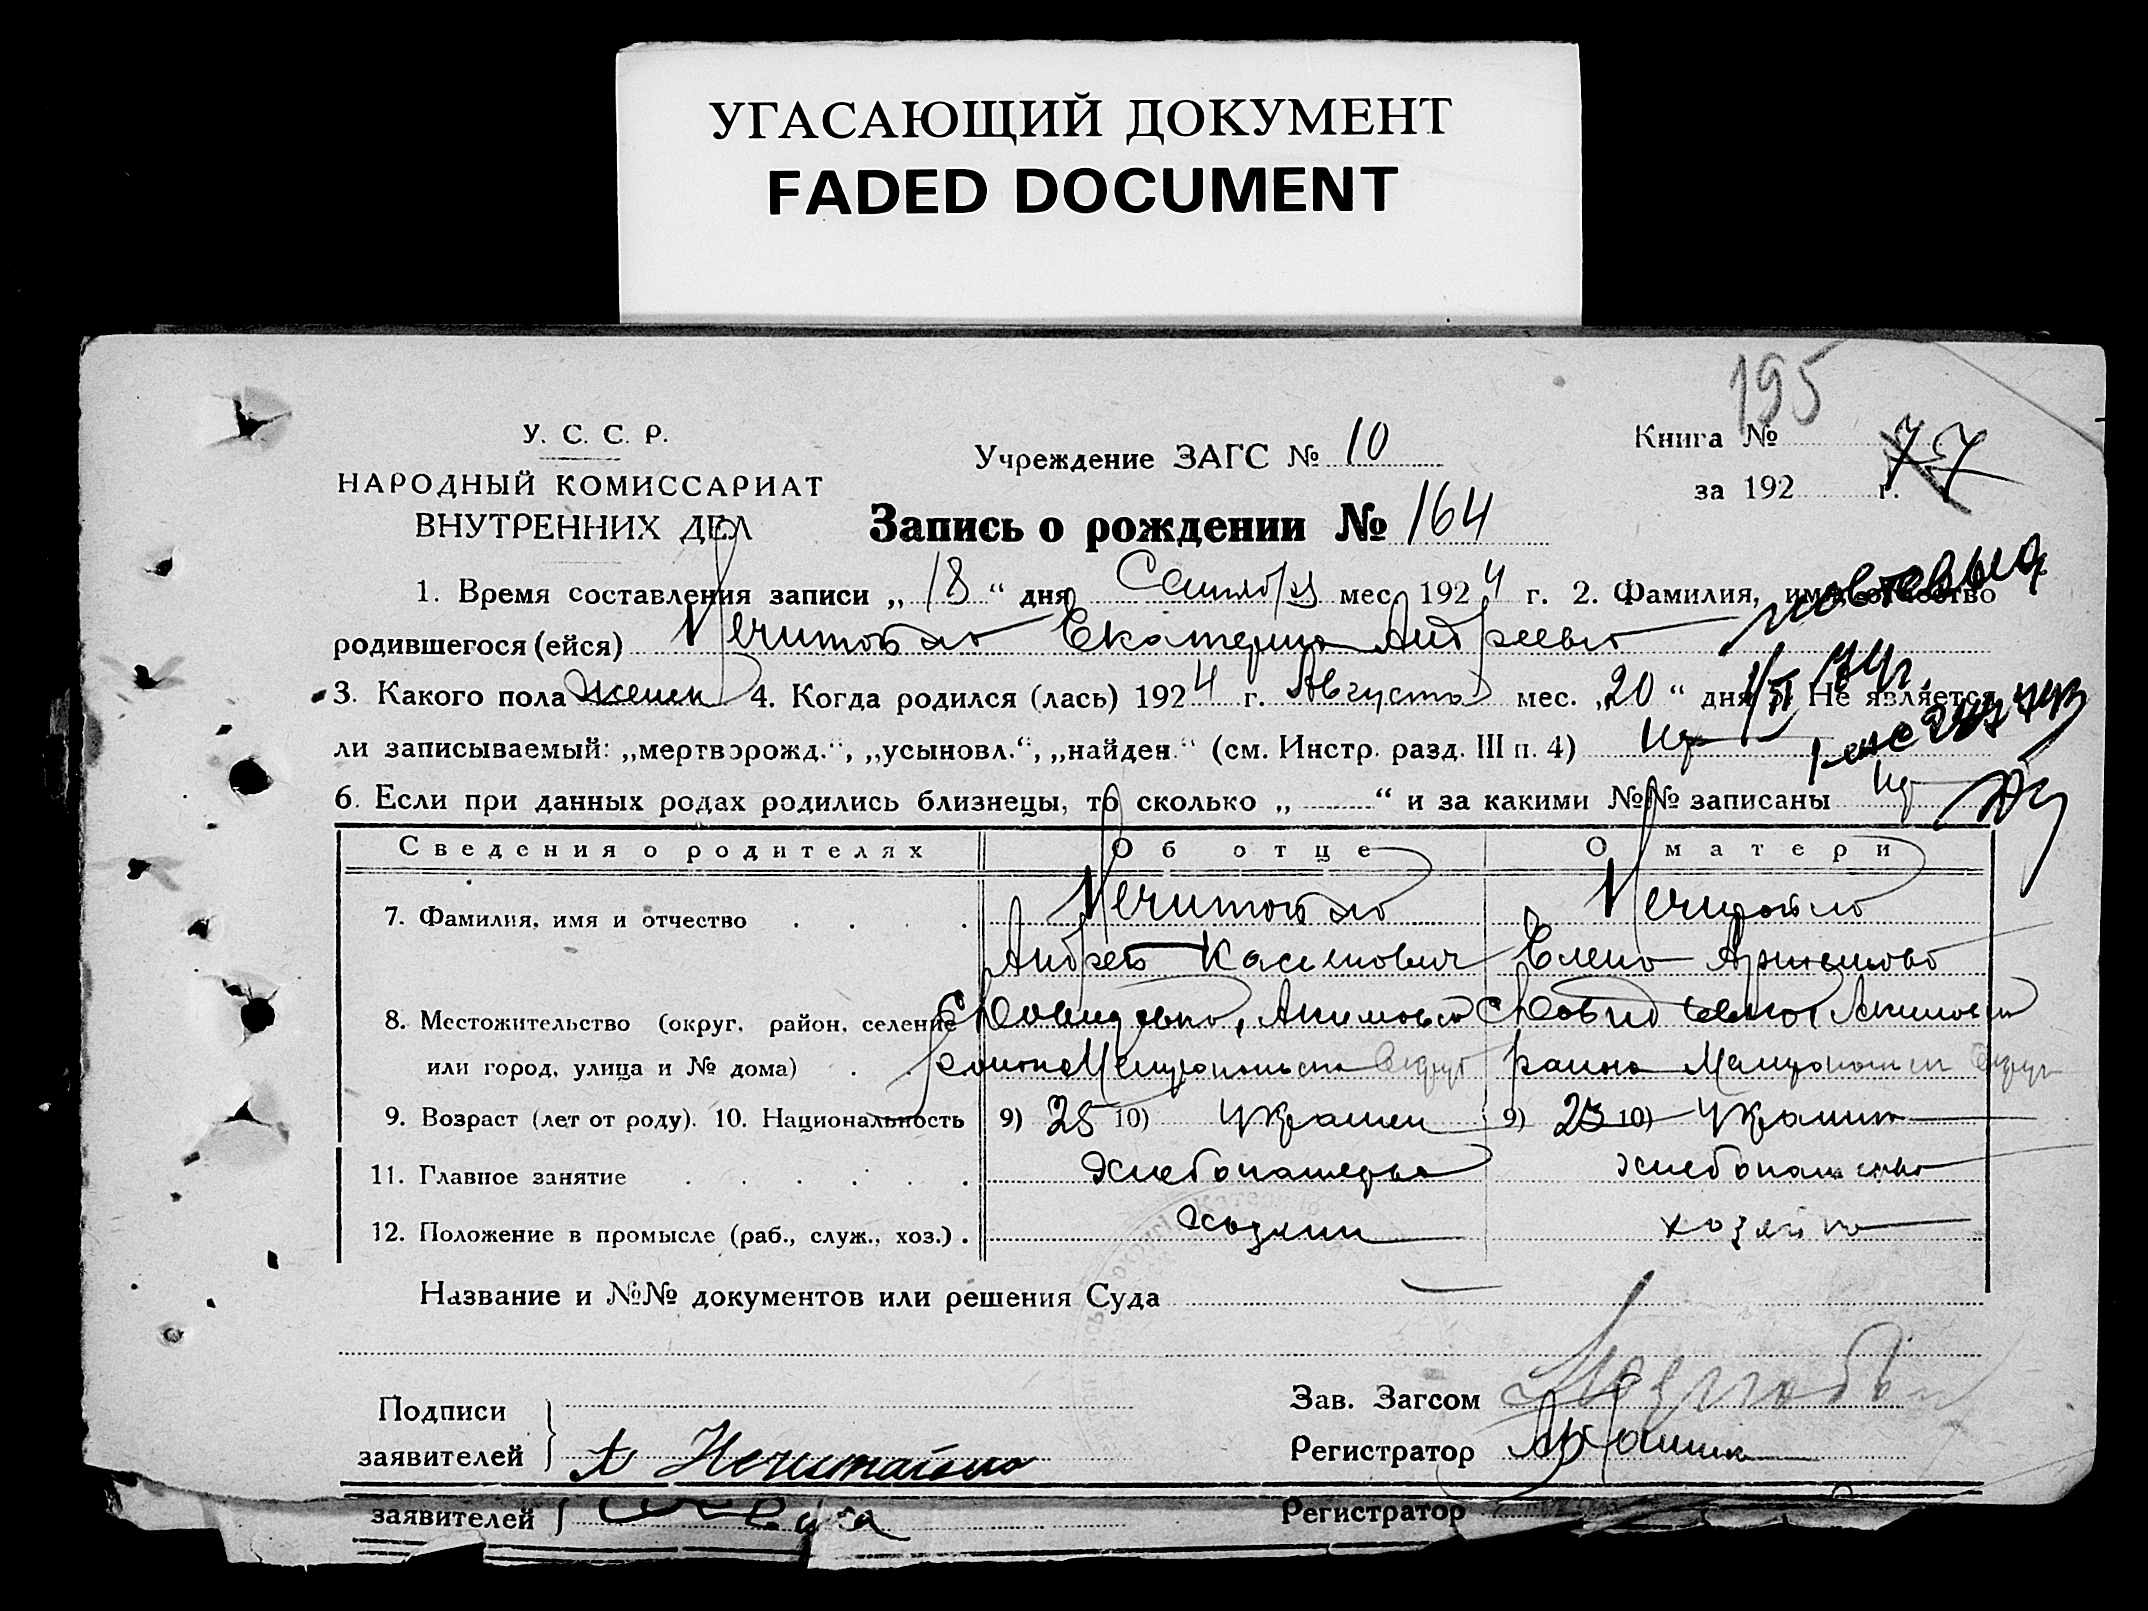 УГАСАЮЩИЙ ДОКУМЕНТ
FADED DOCUMENT
195
У. С. С. Р.
НАРОДНЫЙ КОМИССАРИАТ
ВНУТРЕННИХ ДЕЛ
Учреждение ЗАГС № 10
Книга № 77
за 192 г.
Запись о рождении № 164
1. Время составления записи „ 18 “ дня Сентября мес. 1924 г. 2. Фамилия, имя, отчество
родившегося (ейся) Нечитайло Екатерина Андреевна
3. Какого пола женск 4. Когда родился (лась) 1924 г. Августа мес. „20“ дня 5. Не является
ли записываемый: „мертворожд.“, „усыновл.“, „найден.“ (см. Инстр. разд. III п. 4)
6. Если при данных родах родились близнецы, то сколько „ “ и за какими №№ записаны
Сведения о родителях Об отце О матери
7. Фамилия, имя и отчество Нечитайло Нечитайло
Андрей Касьянович Елена
8. Местожительство (округ, район, селение
или город, улица и № дома) района Мелитопольск округ района Мелитопольск округ
9. Возраст (лет от роду). 10. Национальность 9) 25 10) Украинец 9) 23 10) Украинка
11. Главное занятие хлебопашество хлебопашество
12. Положение в промысле (раб., служ., хоз.) хозяин хозяйка
Название и №№ документов или решения Суда —
Подписи
заявителей А Нечитайло
Зав. Загсом
Регистратор
заявителей
Регистратор